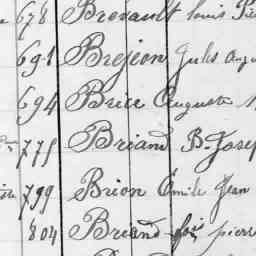 678 Brevault Louis Pie
691 Brejeon Jules Augu
694 Brice Auguste
775 Briand Bte Josep
799 Brion Émile Jean
804 Briand pierre